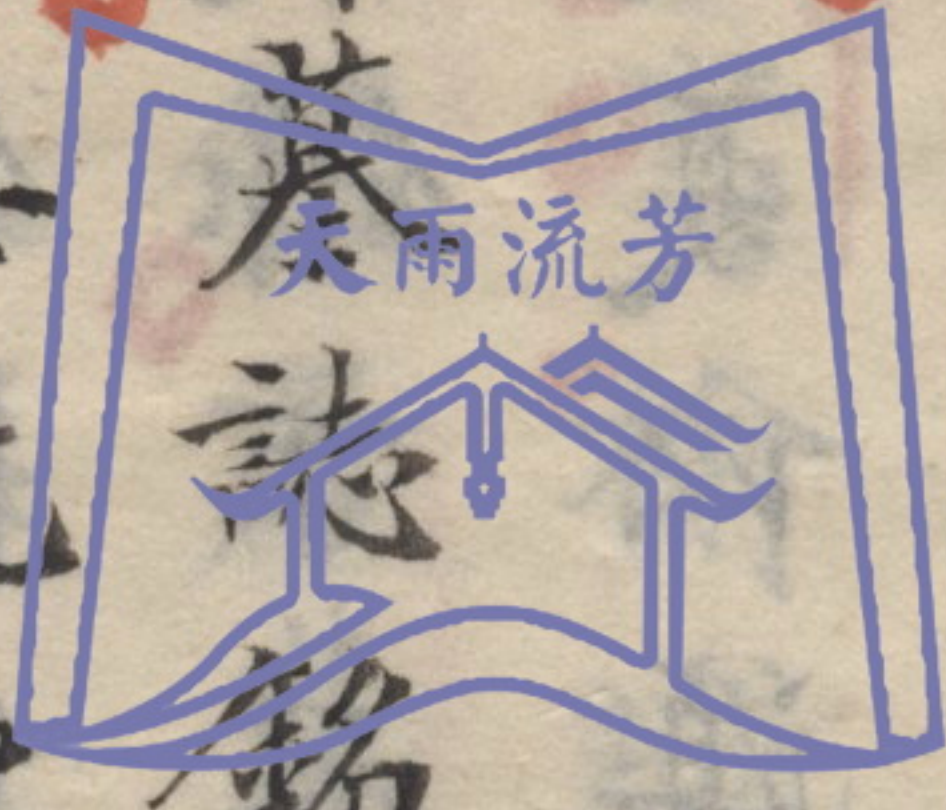 天雨流芳
墓誌銘